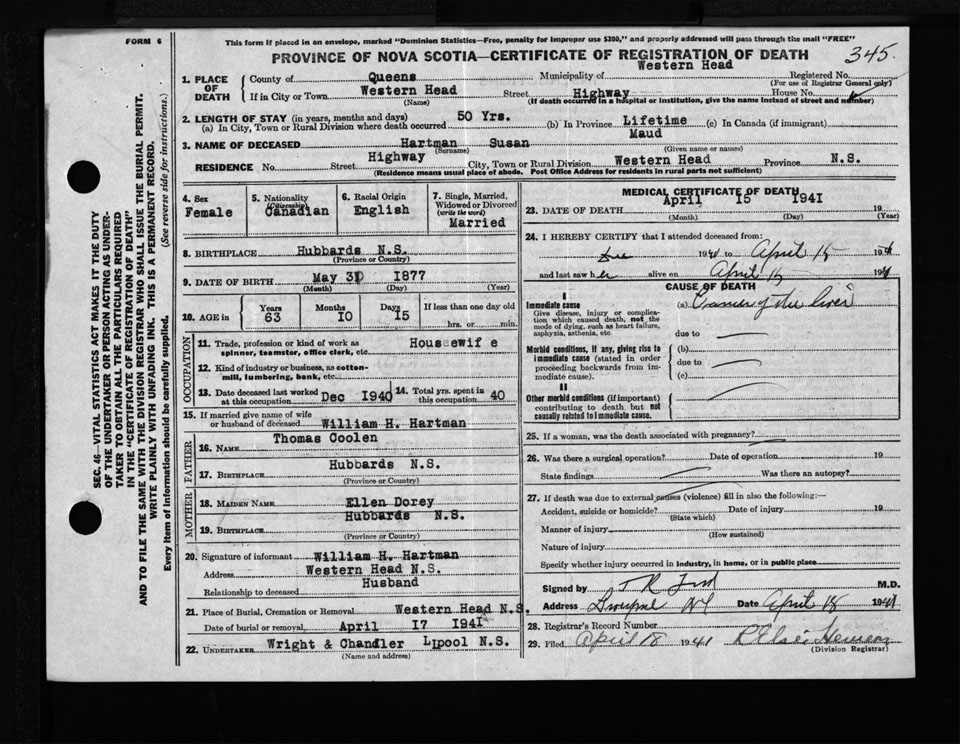 FORM 6
This form if placed in an envelope, marked "Dominion Statistics—Free, penalty for improper use $300," and properly addressed will pass through the mail "FREE"
PROVINCE OF NOVA SCOTIA—CERTIFICATE OF REGISTRATION OF DEATH
345.
SEC. 46—VITAL STATISTICS ACT MAKES IT THE DUTY
OF THE UNDERTAKER OR PERSON ACTING AS UNDER-
TAKER TO OBTAIN ALL THE PARTICULARS REQUIRED
IN THE "CERTIFICATE OF REGISTRATION OF DEATH"
AND TO FILE THE SAME WITH THE DIVISION REGISTRAR WHO SHALL ISSUE THE BURIAL PERMIT.
WRITE PLAINLY WITH UNFADING INK. THIS IS A PERMANENT RECORD.
Every item of information should be carefully supplied. (See reverse side for instructions.)
1. PLACE OF DEATH
County of Queens Municipality of Western Head Registered No.
(For use of Registrar General only)
If in City or Town Western Head Street Highway House No.
(Name) (If death occurred in a hospital or institution, give the name instead of street and number)
2. LENGTH OF STAY (in years, months and days)
(a) In City, Town or Rural Division where death occurred 50 Yrs. (b) In Province Lifetime (c) In Canada (if immigrant)
3. NAME OF DECEASED Hartman Susan Maud
(Surname) (Given name or names)
RESIDENCE No. Street Highway City, Town or Rural Division Western Head Province N.S.
(Residence means usual place of abode. Post Office Address for residents in rural parts not sufficient)
4. Sex
Female
5. Nationality
(Citizenship)
Canadian
6. Racial Origin
English
7. Single, Married,
Widowed or Divorced
(write the word)
Married
8. BIRTHPLACE Hubbards N.S.
(Province or Country)
9. DATE OF BIRTH May 31 1877
(Month) (Day) (Year)
10. AGE in
Years 63
Months 10
Days 15
If less than one day old
hrs. or min.
OCCUPATION
11. Trade, profession or kind of work as
spinner, teamster, office clerk, etc. Housewife
12. Kind of industry or business, as cotton-
mill, lumbering, bank, etc.
13. Date deceased last worked
at this occupation Dec 1940
14. Total yrs. spent in
this occupation 40
15. If married give name of wife
or husband of deceased William H. Hartman
FATHER
16. NAME Thomas Coolen
17. BIRTHPLACE Hubbards N.S.
(Province or Country)
MOTHER
18. MAIDEN NAME Ellen Dorey
19. BIRTHPLACE Hubbards N.S.
(Province or Country)
20. Signature of informant William H. Hartman
Address Western Head N.S.
Relationship to deceased Husband
21. Place of Burial, Cremation or Removal Western Head N.S.
Date of burial or removal April 17 1941
22. UNDERTAKER Wright & Chandler Lpool N.S.
(Name and address)
MEDICAL CERTIFICATE OF DEATH
23. DATE OF DEATH April 15 1941 19
(Month) (Day) (Year)
24. I HEREBY CERTIFY that I attended deceased from:
1940 to April 15 1941
and last saw her alive on April 15 1941
CAUSE OF DEATH
I
Immediate cause
Give disease, injury or complica-
tion which caused death, not the
mode of dying, such as heart failure,
asphyxia, asthenia, etc.
(a) Cancer of the liver
due to
Morbid conditions, if any, giving rise to
immediate cause (stated in order
proceeding backwards from im-
mediate cause).
(b)
due to
(c)
II
Other morbid conditions (if important)
contributing to death but not
causally related to immediate cause.
25. If a woman, was the death associated with pregnancy?
26. Was there a surgical operation? Date of operation 19
State findings Was there an autopsy?
27. If death was due to external causes (violence) fill in also the following:—
Accident, suicide or homicide? Date of injury 19
(State which)
Manner of injury
(How sustained)
Nature of injury
Specify whether injury occurred in industry, in home, or in public place
Signed by M.D.
Address Date April 18 1941
28. Registrar's Record Number
29. Filed April 18 1941
(Division Registrar)